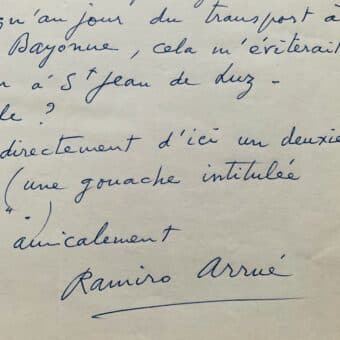 qu'au jour du transport à
Bayonne, cela m'éviterait
à St Jean de Luz -
?
directement d'ici un deuxie
(une gouache intitulée
".)
amicalement
Ramiro Arrué